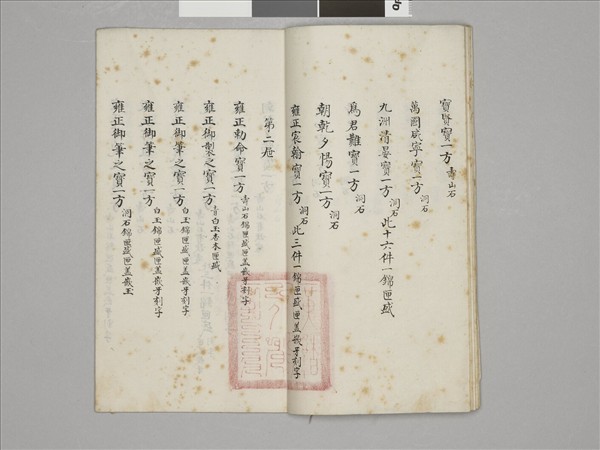 寶賢寶一方 壽山石
萬國咸寧寶一方 洞石
九洲清晏寶一方 洞石 此十六件一錦匣盛
為君難寶一方 洞石
朝乾夕惕寶一方 洞石
雍正宸翰寶一方 洞石 此三件一錦匣盛匣盖嵌牙刻字
第二層
雍正勅命寶一方 壽山石錦匣盛匣盖嵌牙刻字
雍正御製之寶一方 青白玉杏木匣盛
雍正御筆之寶一方 白玉錦匣盛匣盖嵌牙刻字
雍正御筆之寶一方 白玉錦匣盛匣盖嵌牙刻字
雍正御筆之寶一方 洞石錦匣盛匣盖嵌玉